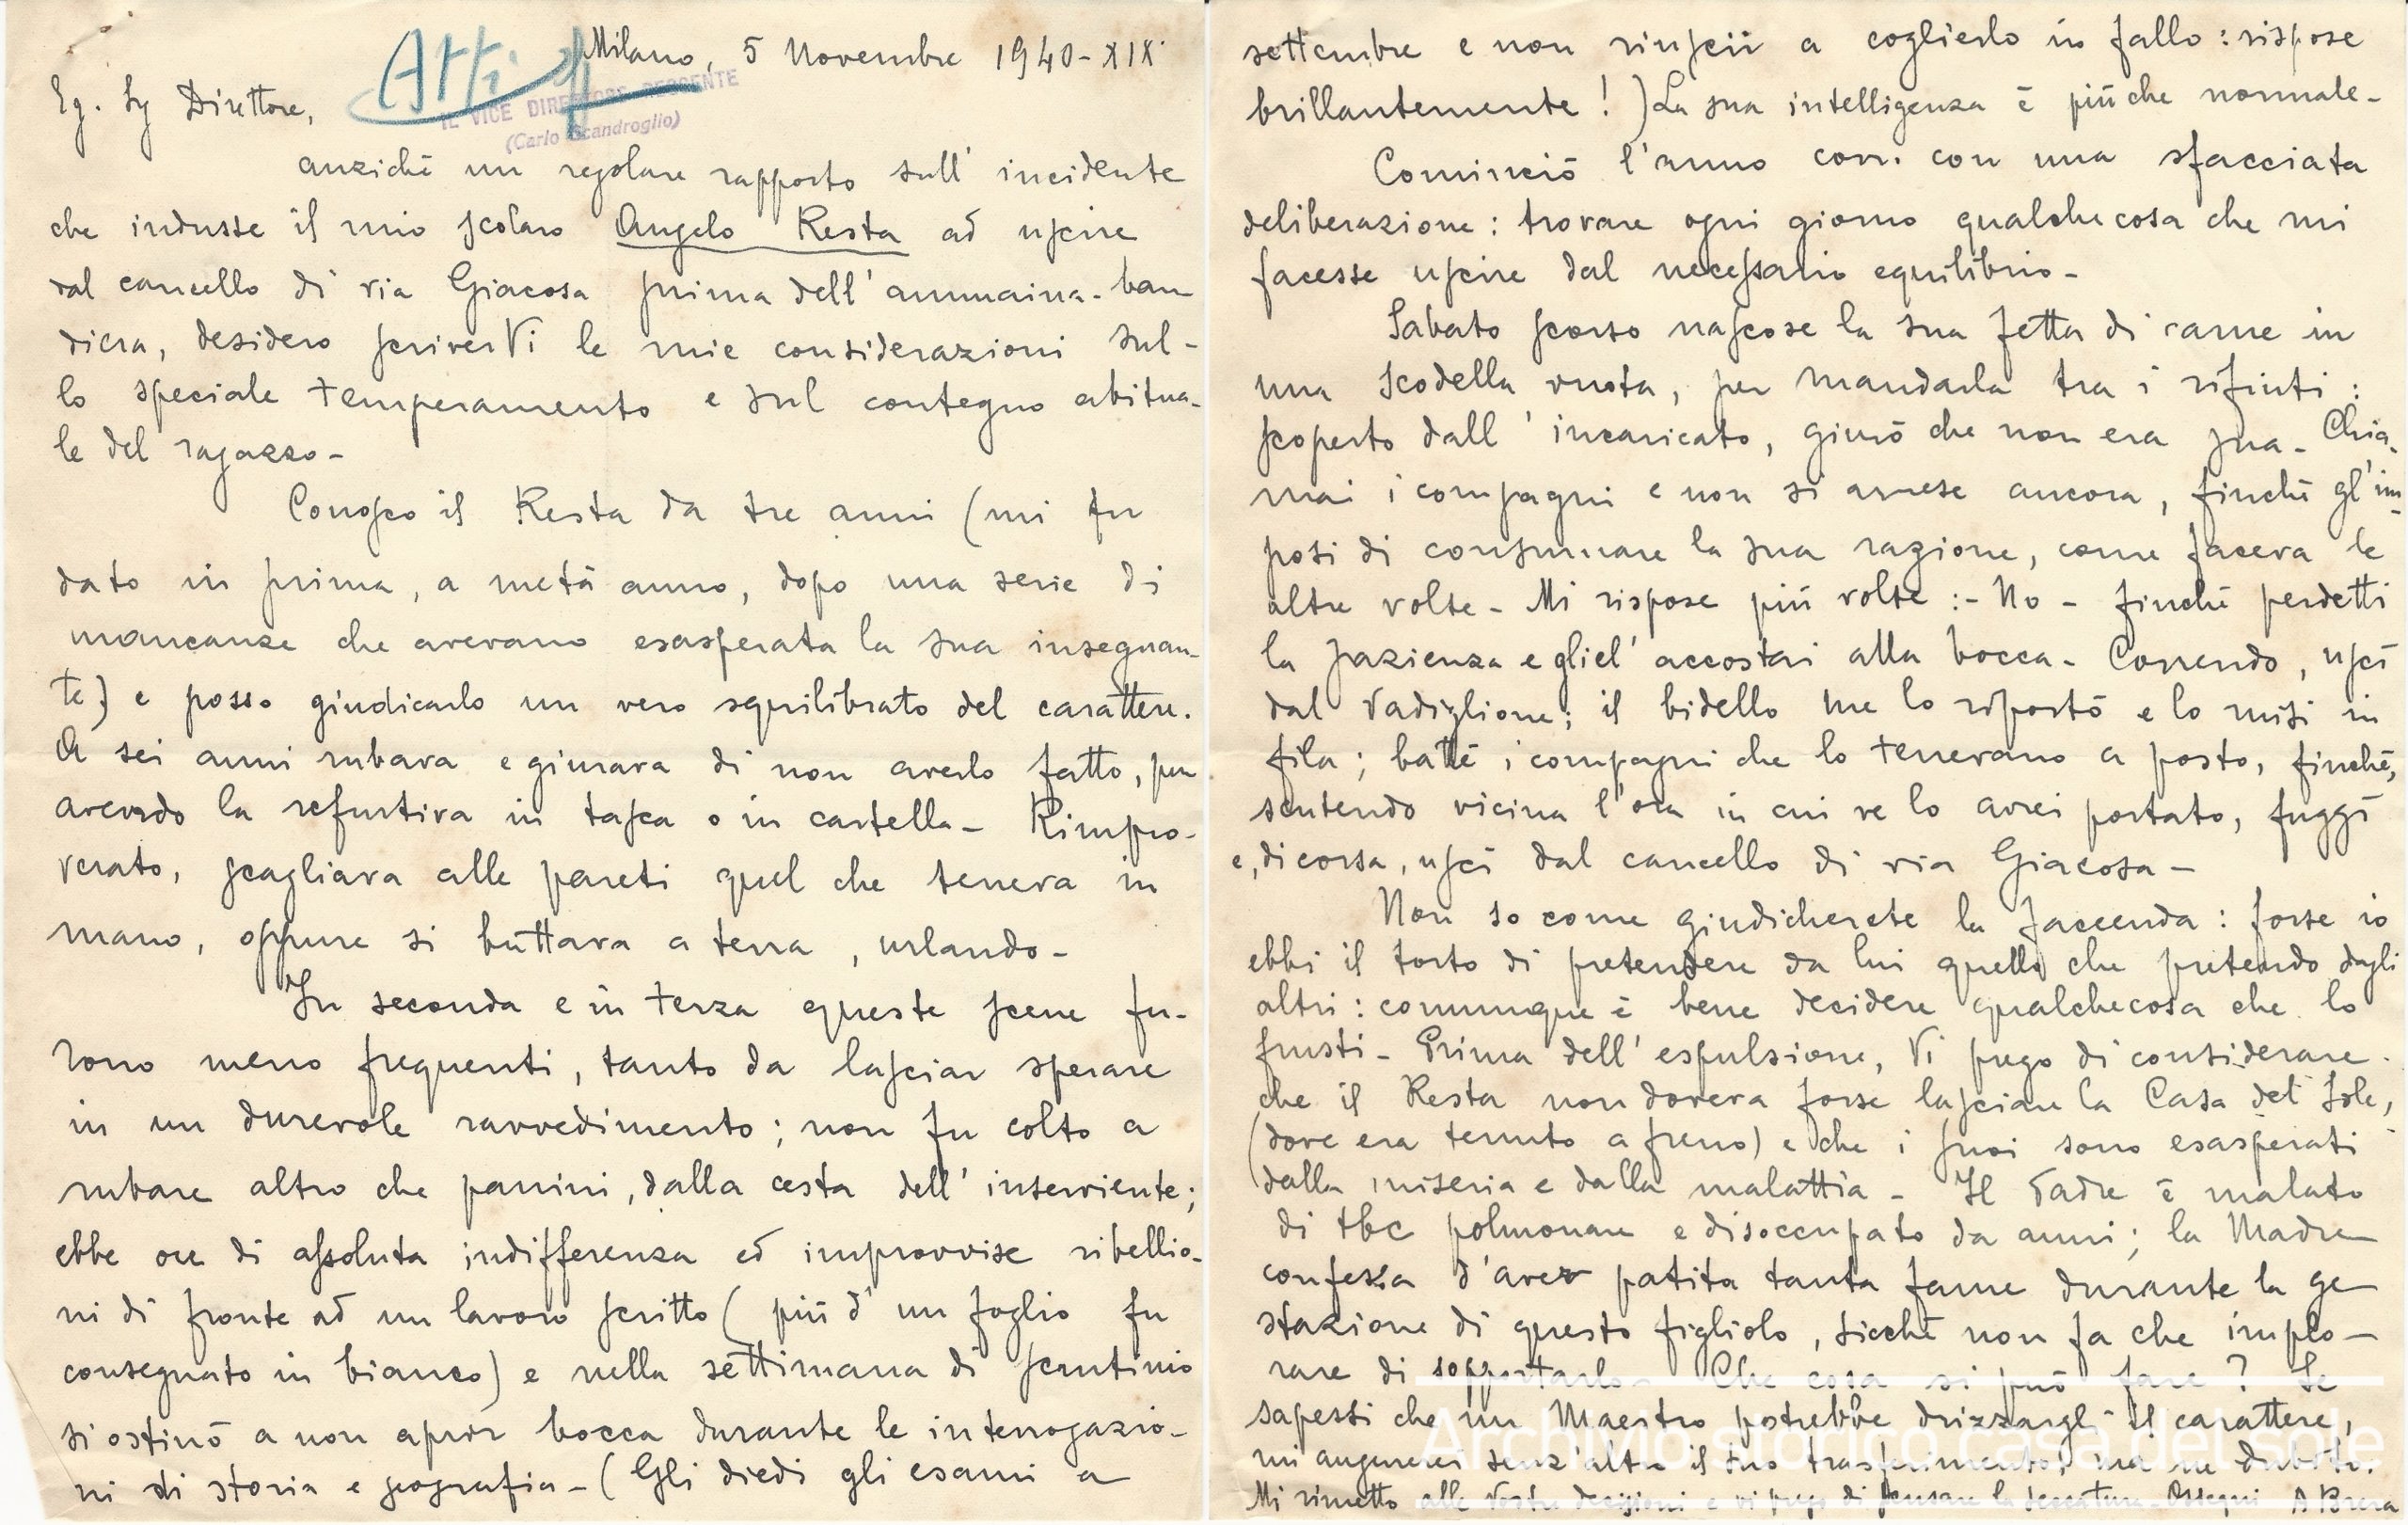 Atti
Milano, 5 Novembre 1940-XIX°
IL VICE DIRETTORE REGGENTE
(Carlo Scandroglio)
Eg. Sg Direttore,
anziché un regolare rapporto sull' incidente
che indusse il mio scolaro Angelo Resta ad uscire
dal cancello di via Giacosa prima dell' ammaina-ban
diera, desidero scriverVi le mie considerazioni sul-
lo speciale temperamento e sul contegno abitua-
le del ragazzo-
Conosco il Resta da tre anni (mi fu
dato in prima, a metà anno, dopo una serie di
mancanze che avevano esasperata la sua insegnan-
te) e posso giudicarlo un vero squilibrato del carattere.
A sei anni rubava e giurava di non averlo fatto, pur
avendo la refurtiva in tasca o in cartella- Rimpro-
verato, scagliava alle pareti quel che teneva in
mano, oppure si buttava a terra, urlando-
In seconda e in terza queste scene fu-
rono meno frequenti, tanto da lasciar sperare
in un durevole ravvedimento; non fu colto a
rubare altro che panini, dalla cesta dell' inserviente;
ebbe ore di assoluta indifferenza ed improvvise ribellio-
ni di fronte ad un lavoro scritto (più d' un foglio fu
consegnato in bianco) e nella settimana di scrutinio
si ostinò a non aprir bocca durante le interrogazio-
ni di storia e geografia-(Gli diedi gli esami a
settembre e non riuscii a coglierlo in fallo: rispose
brillantemente!) La sua intelligenza è più che normale-
Cominciò l'anno corr. con una sfacciata
deliberazione: trovare ogni giorno qualchecosa che mi
facesse uscire dal necessario equilibrio-
Sabato scorso nascose la sua fetta di carne in
una scodella vuota, per mandarla tra i rifiuti:
scoperto dall' incaricato, giurò che non era sua- Chia-
mai i compagni e non si arrese ancora, finché gl'im-
posi di consumare la sua razione, come faceva le
altre volte- Mi rispose più volte:-No- finché perdetti
la pazienza e gliel' accostai alla bocca- Correndo, uscì
dal Padiglione; il bidello me lo riportò e lo misi in
fila; batté i compagni che lo tenevano a posto, finché,
sentendo vicina l'ora in cui ve lo avrei portato, fuggì
e, di corsa, uscì dal cancello di via Giacosa-
Non so come giudicherete la faccenda: forse io
ebbi il torto di pretendere da lui quello che pretendo dagli
altri: comunque è bene decidere qualchecosa che lo
frusti- Prima dell' espulsione, Vi prego di considerare
che il Resta non doveva forse lasciare la Casa del Sole,
(dove era tenuto a freno) e che i suoi sono esasperati
dalla miseria e dalla malattia- Il Padre è malato
di tbc polmonare e disoccupato da anni; la Madre
confessa d'aver patita tanta fame durante la ge
stazione di questo figliolo, sicché non fa che implo-
rare di sopportarlo- Che cosa si può fare? Se
sapessi che un Maestro potrebbe drizzargli il carattere,
mi augurerei senz'altro il suo trasferimento, ma ne dubito.
Mi rimetto alle Vostre decisioni e vi prego di scusare la seccatura- Ossequi A Brera
Archivio storico casa del sole